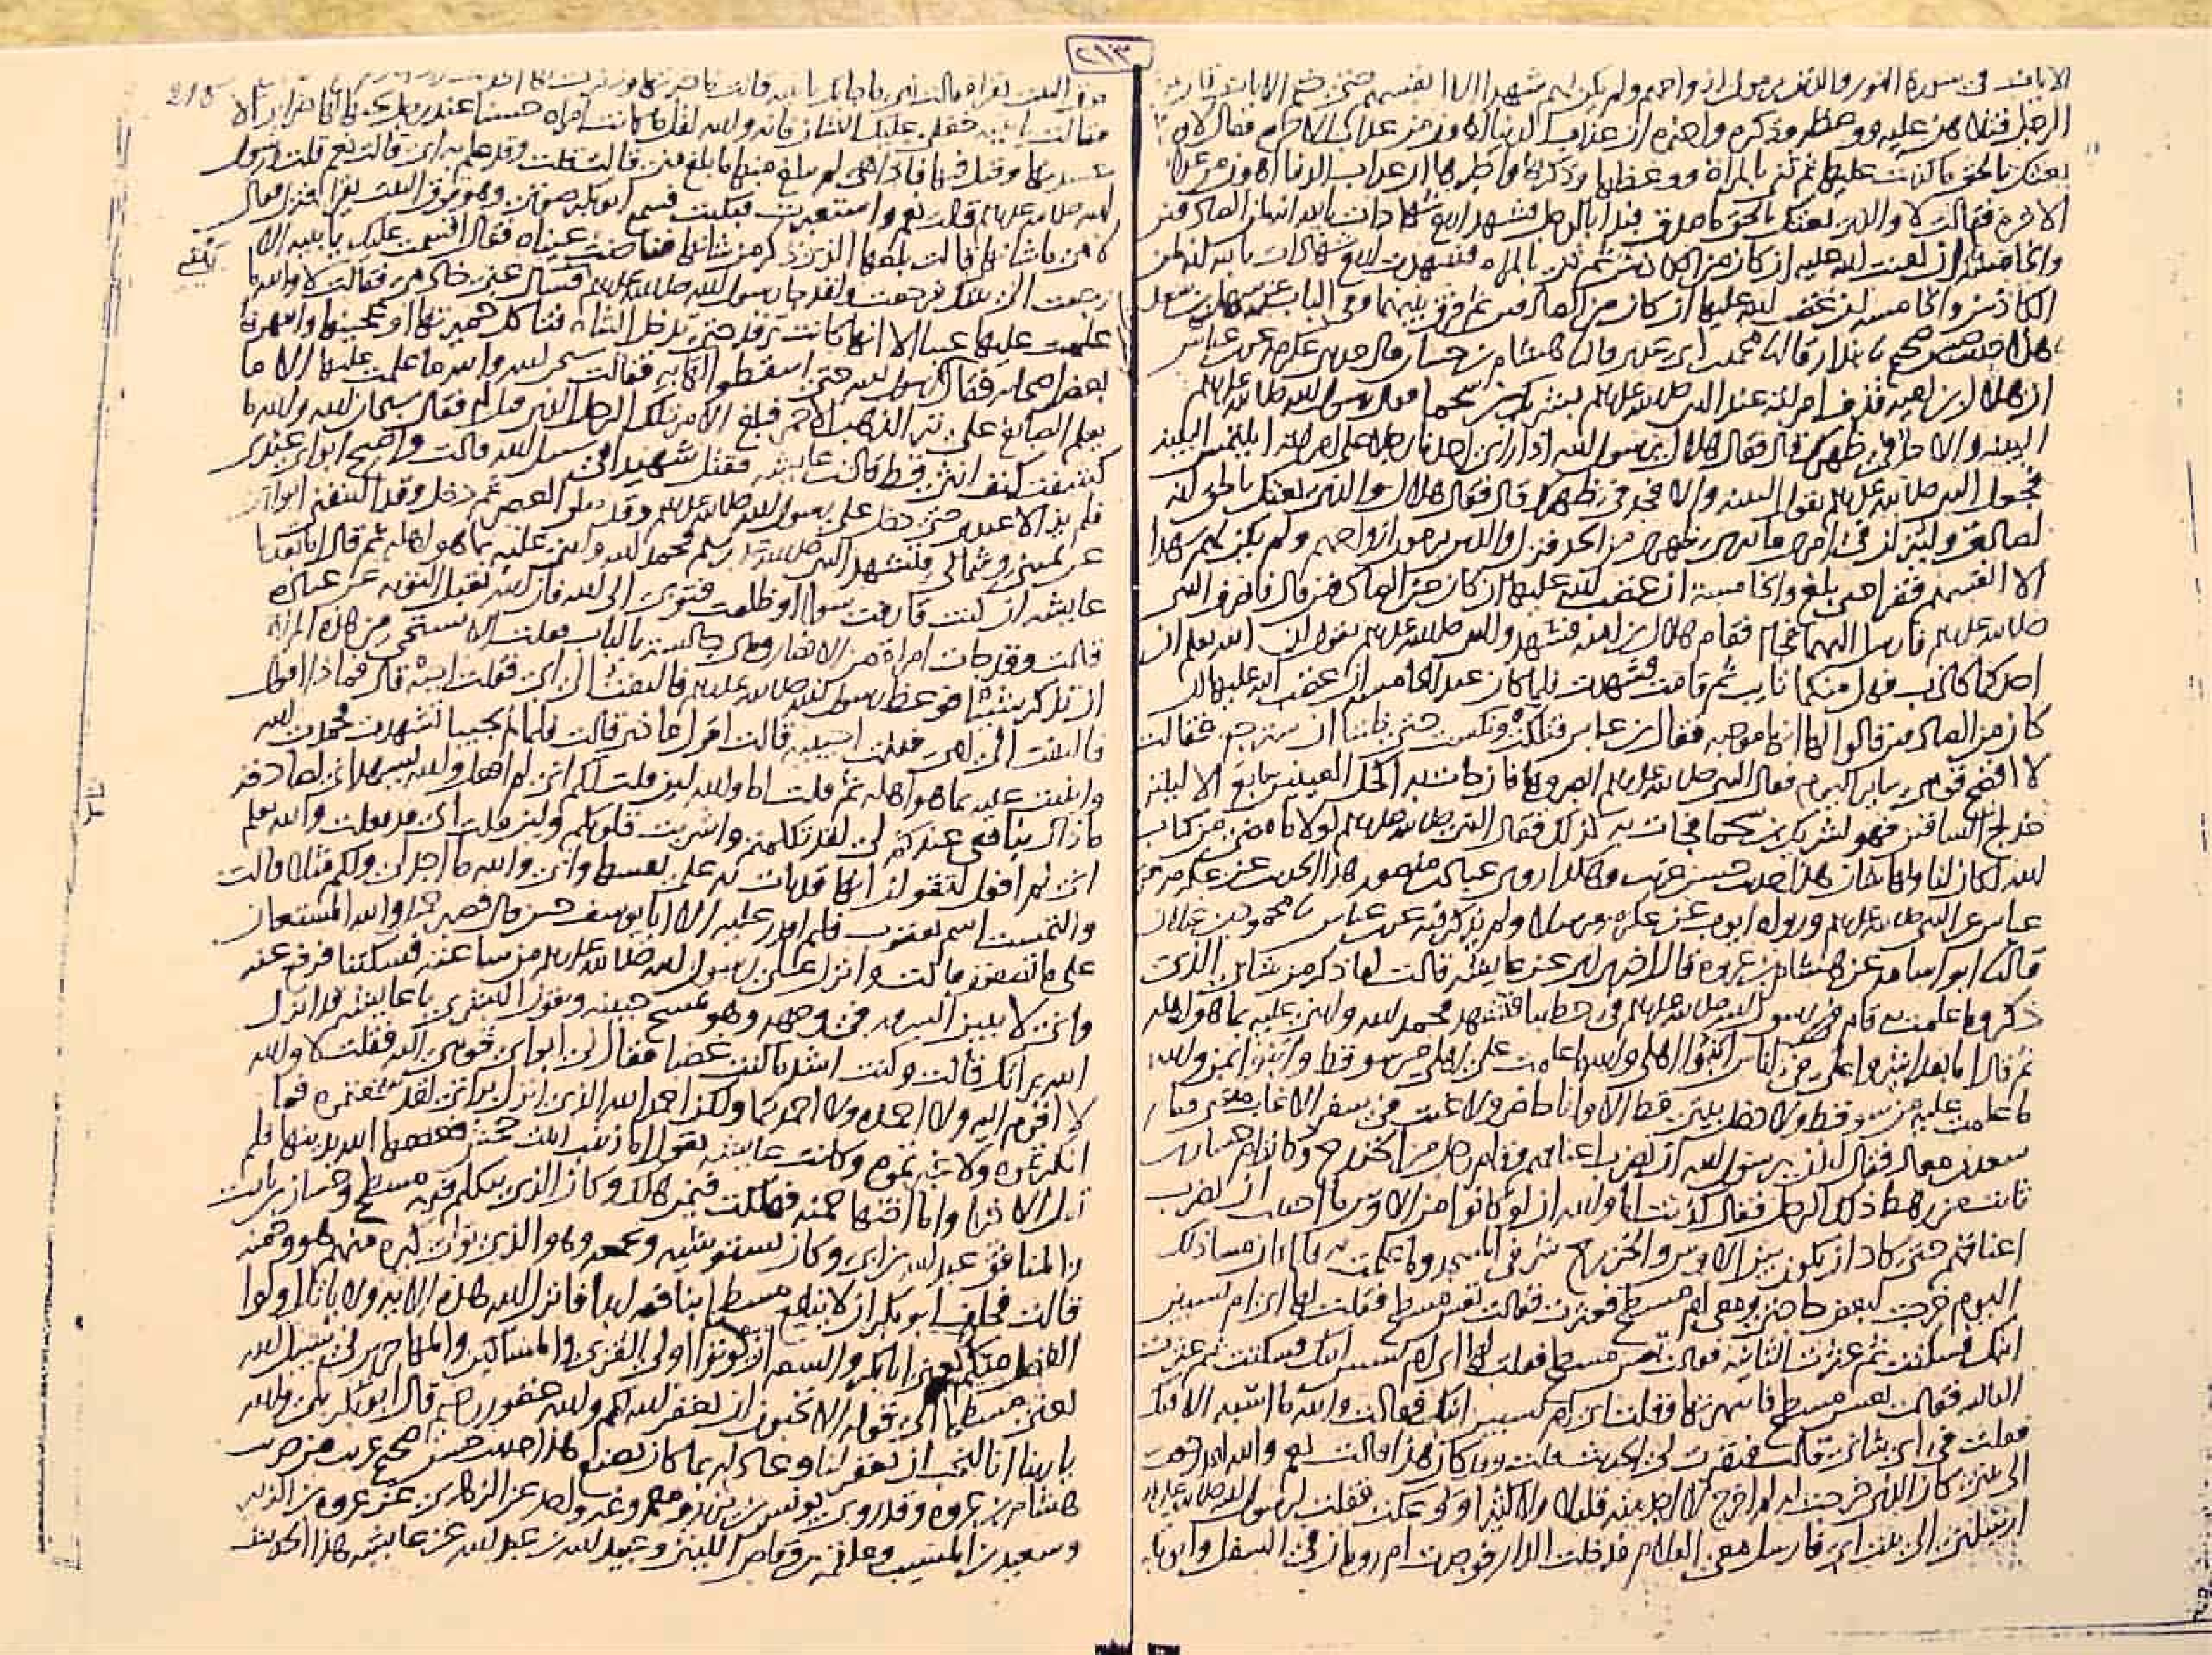 ٢٩٣
الايات في سورة النور والذين يرمون ازواجهم ولم يكن لهم شهدا الا انفسهم حتى ختم الايات
الرجل فتلاهن عليه ووعظه وذكره واخبره ان عذاب الدنيا اهون من عذاب الاخره فقال لا والذي
بعثك بالحق ما كذبت عليها ثم ثنى بالمراة ووعظها وذكرها واخبرها ان عذاب الدنيا اهون من عذاب
الاخرة فقالت لا والذي بعثك بالحق ما صدق فبدا بالرجل فشهد اربع شهادات بالله انه لمن الصادقين
والخامسة ان لعنت الله عليه ان كان من الكاذبين ثم ثنى بالمراه فشهدت اربع شهادات بالله انه لمن
الكاذبين والخامسه ان غضب الله عليها ان كان من الصادقين ثم فرق بينهما وفي الباب عن سهل بن سعد
هذا حديث حسن صحيح نا بندار قال نا محمد بن ابي عدي قال نا هشام بن حسان قال حدثني عكرمه عن ابن عباس
ان هلال بن اميه قذف امراته عند النبي صلى الله عليه وسلم بشريك بن سحما فقال رسول الله صلى الله عليه وسلم
البينه والا حد في ظهرك قال فقال هلال يا رسول الله اذا راى احدنا رجلا على امراته ايلتمس البينه
فجعل النبي صلى الله عليه وسلم يقول البينه والا فحد في ظهرك قال فقال هلال والذي بعثك بالحق انه
لصادق ولينزلن في امري ما يبري ظهري من الحد فنزل والذين يرمون ازواجهم ولم يكن لهم شهدا
الا انفسهم فقرا حتى بلغ والخامسة ان غضب الله عليها ان كان من الصادقين قال فانصرف النبي
صلى الله عليه وسلم فارسل اليهما فجاا فقام هلال بن اميه فشهد والنبي صلى الله عليه وسلم يقول ان الله يعلم ان
احدكما كاذب فهل منكما تايب ثم قامت فشهدت فلما كان عند الخامسة ان غضب الله عليها ان
كان من الصادقين قالوا لها انها موجبه فقال ابن عباس فتلكت ونكست حتى ظننا ان سترجع فقالت
لا افضح قومي ساير اليوم فقال النبي صلى الله عليه وسلم ابصروها فان جات به اكحل العينين سابغ الاليتين
خدلج الساقين فهو لشريك بن سحما فجات به كذلك فقال النبي صلى الله عليه وسلم لولا ما مضى من كتاب
الله لكان لنا ولها شان هذا حديث حسن غريب وهكذا روى عباد بن منصور هذا الحديث عن عكرمه عن
عباس عن النبي صلى الله عليه وسلم ورواه ايوب عن عكرمه مرسلا ولم يذكر فيه عن ابن عباس نا محمود بن غيلان
قال نا ابو اسامه عن هشام بن عروه قال اخبرني ابي عن عايشه قالت لما ذكر من شاني الذي
ذكر وما علمت به قام رسول الله صلى الله عليه وسلم في خطيبا فتشهد فحمد الله واثنى عليه بما هو اهله
ثم قال اما بعد اشيروا علي في اناس ابنوا اهلي والله ما علمت على اهلي من سو قط وابنوا بمن والله
ما علمت عليه من سو قط ولا دخل بيتي قط الا وانا حاضر ولا غبت في سفر الا غاب معي فقام
سعد بن معاذ فقال ايذن لي يا رسول الله ان نضرب اعناقهم وقام رجل من الخزرج وكانت ام حسان بن
ثابت من رهط ذلك الرجل فقال كذبت اما والله ان لو كانوا من الاوس ما احببت ان تضرب
اعناقهم حتى كاد ان يكون بين الاوس والخزرج شر في المسجد وما علمت به فلما كان مسا ذلك
اليوم خرجت لبعض حاجتي ومعي ام مسطح فعثرت فقالت تعس مسطح فقلت لها اي ام تسبين
ابنك فسكتت ثم عثرت الثانيه فقالت تعس مسطح فقلت لها اي ام تسبين ابنك فسكتت ثم عثرت
الثالثه فقالت تعس مسطح فانتهرتها فقلت اي ام تسبين ابنك فقالت والله ما اسبه الا فيك
فقلت في اي شاني قالت فبقرت لي الحديث قلت وقد كان هذا قالت نعم والله لقد رجعت
الى بيتي كان الذي خرجت له لم اخرج لا اجد منه قليلا ولا كثيرا ووعكت فقلت لرسول الله صلى الله عليه وسلم
ارسلني الى بيت ابي فارسل معي الغلام فدخلت الدار فوجدت ام رومان في السفل وابو بكر
فوق البيت يقرا فقالت امي ما جا بك يا بنيه قالت فاخبرتها وذكرت لها الحديث
فقالت يا بنيه خففي عليك الشان فانه والله لقل ما كانت امراه حسنا عند رجل يحبها لها ضراير الا
حسدنها وقيل فيها فاذا هي لم يبلغ منها ما بلغ مني قالت قلت وقد علم به ابي قالت نعم قلت ورسول
الله صلى الله عليه وسلم قالت نعم واستعبرت فبكيت فسمع ابو بكر صوتي وهو فوق البيت يقرا فنزل فقال
لامي ما شانها قالت بلغها الذي ذكر من شانها ففاضت عيناه فقال اقسمت عليك يا بنيه الا
رجعت الى بيتك فرجعت ولقد جا رسول الله صلى الله عليه وسلم فسال عني خادمي فقالت لا والله ما
علمت عليها عيبا الا انها كانت ترقد حتى تدخل الشاه فتاكل خميرتها او عجينتها وانتهرها
بعض اصحابه فقال اصدقي رسول الله حتى اسقطوا لها به فقالت سبحن الله والله ما علمت عليها الا ما
يعلم الصايغ على تبر الذهب الاحمر فبلغ الامر ذلك الرجل الذي قيل له فقال سبحان الله والله ما
كشفت كنف انثى قط قالت عايشه فقتل شهيدا في سبيل الله قالت واصبح ابواي عندي
فلم يزالا عندي حتى دخل علي رسول الله صلى الله عليه وسلم وقد صلى العصر ثم دخل وقد اكتنفني ابواي
عن يميني وشمالي فتشهد النبي صلى الله عليه وسلم فحمد الله واثنى عليه بما هو اهله ثم قال اما بعد يا
عايشه ان كنت قارفت سوا او ظلمت فتوبي الى الله فان الله يقبل التوبه عن عباده
قالت وقد جات امراة من الانصار وهي جالسة بالباب فقلت الا تستحي من هذه المراة
ان تذكر شيئا فوعظ رسول الله صلى الله عليه وسلم فالتفت الى ابي فقلت اجبه قال فماذا اقول
فالتفت الى امي فقلت اجيبيه قالت اقول ماذا قالت فلما لم يجيبا تشهدت فحمدت الله
واثنيت عليه بما هو اهله ثم قلت اما والله لين قلت لكم اني لم افعل والله يشهد اني لصادقه
ما ذاك بنافعي عندكم لي لقد تكلمتم واشربت قلوبكم ولين قلت اني قد فعلت والله يعلم
اني لم افعل لتقولن انها قد بات به على نفسها واني والله ما اجد لي ولكم مثلا قالت
والتمست اسم يعقوب فلم اقدر عليه الا ابا يوسف حين قال فصبر جميل والله المستعان
على ما تصفون قالت وانزل على رسول الله صلى الله عليه وسلم من ساعته فسكتنا فرفع عنه
واني لا تبين السرور في وجهه وهو يمسح جبينه ويقول البشرى يا عايشه قد انزل
الله براتك قالت وكنت اشد ما كنت غضبا فقال لي ابواي قومي اليه فقلت لا والله
لا اقوم اليه ولا احمده ولا احمدكما ولكن احمد الله الذي انزل براتي لقد سمعتموه فما
انكرتموه ولا غيرتموه وكانت عايشه تقول اما زينب بنت جحش فعصمها الله بدينها فلم
تقل الا خيرا واما اختها حمنه فهلكت فيمن هلك وكان الذي يتكلم فيه مسطح وحسان بن ثابت
والمنافق عبد الله بن ابي وكان يستوشيه ويجمعه وهو الذي تولى كبره منهم هو وحمنه
قالت فحلف ابو بكر ان لا ينفع مسطحا بنافعه ابدا فانزل الله هذه الايه ولا ياتل اولوا
الفضل منكم يعني ابا بكر والسعه ان يوتوا اولي القربى والمساكين والمهاجرين في سبيل الله
يعني مسطحا الى قوله الا تحبون ان يغفر الله لكم والله غفور رحيم قال ابو بكر بلى والله
يا ربنا انا لنحب ان تغفر لنا وعاد له بما كان يصنع هذا حديث حسن صحيح غريب من حديث
هشام بن عروه وقد روى يونس بن يزيد ومعمر وغير واحد عن الزهري عن عروه بن الزبير
وسعيد بن المسيب وعلقمه بن وقاص الليثي وعبيد الله بن عبد الله عن عايشه هذا الحديث